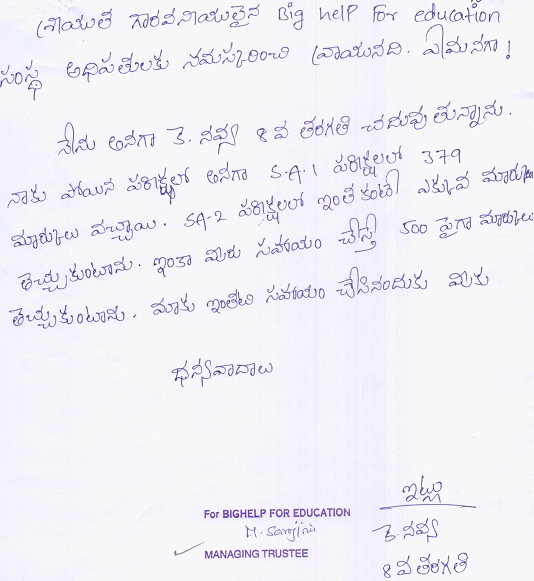 శ్రీయుత గౌరవనీయులైన Big help For education
సంస్థ అధిపతులకు నమస్కరించి వ్రాయునది. ఏమనగా!
నేను అనగా కె. నవ్య 8 వ తరగతి చదువుతున్నాను.
నాకు పోయిన పరీక్షల్లో అనగా S.A.1 పరీక్షలలో 379
మార్కులు వచ్చాయి. SA-2 పరీక్షలలో ఇంతకంటే ఎక్కువ మార్కులు
తెచ్చుకుంటాను. ఇంకా మీరు సహాయం చేస్తే 500 పైగా మార్కులు
తెచ్చుకుంటాను. మాకు ఇంతటి సహాయం చేసినందుకు మీకు
ధన్యవాదాలు
ఇట్లు
కె. నవ్య
8 వ తరగతి
For BIGHELP FOR EDUCATION
M. Sarojini
MANAGING TRUSTEE